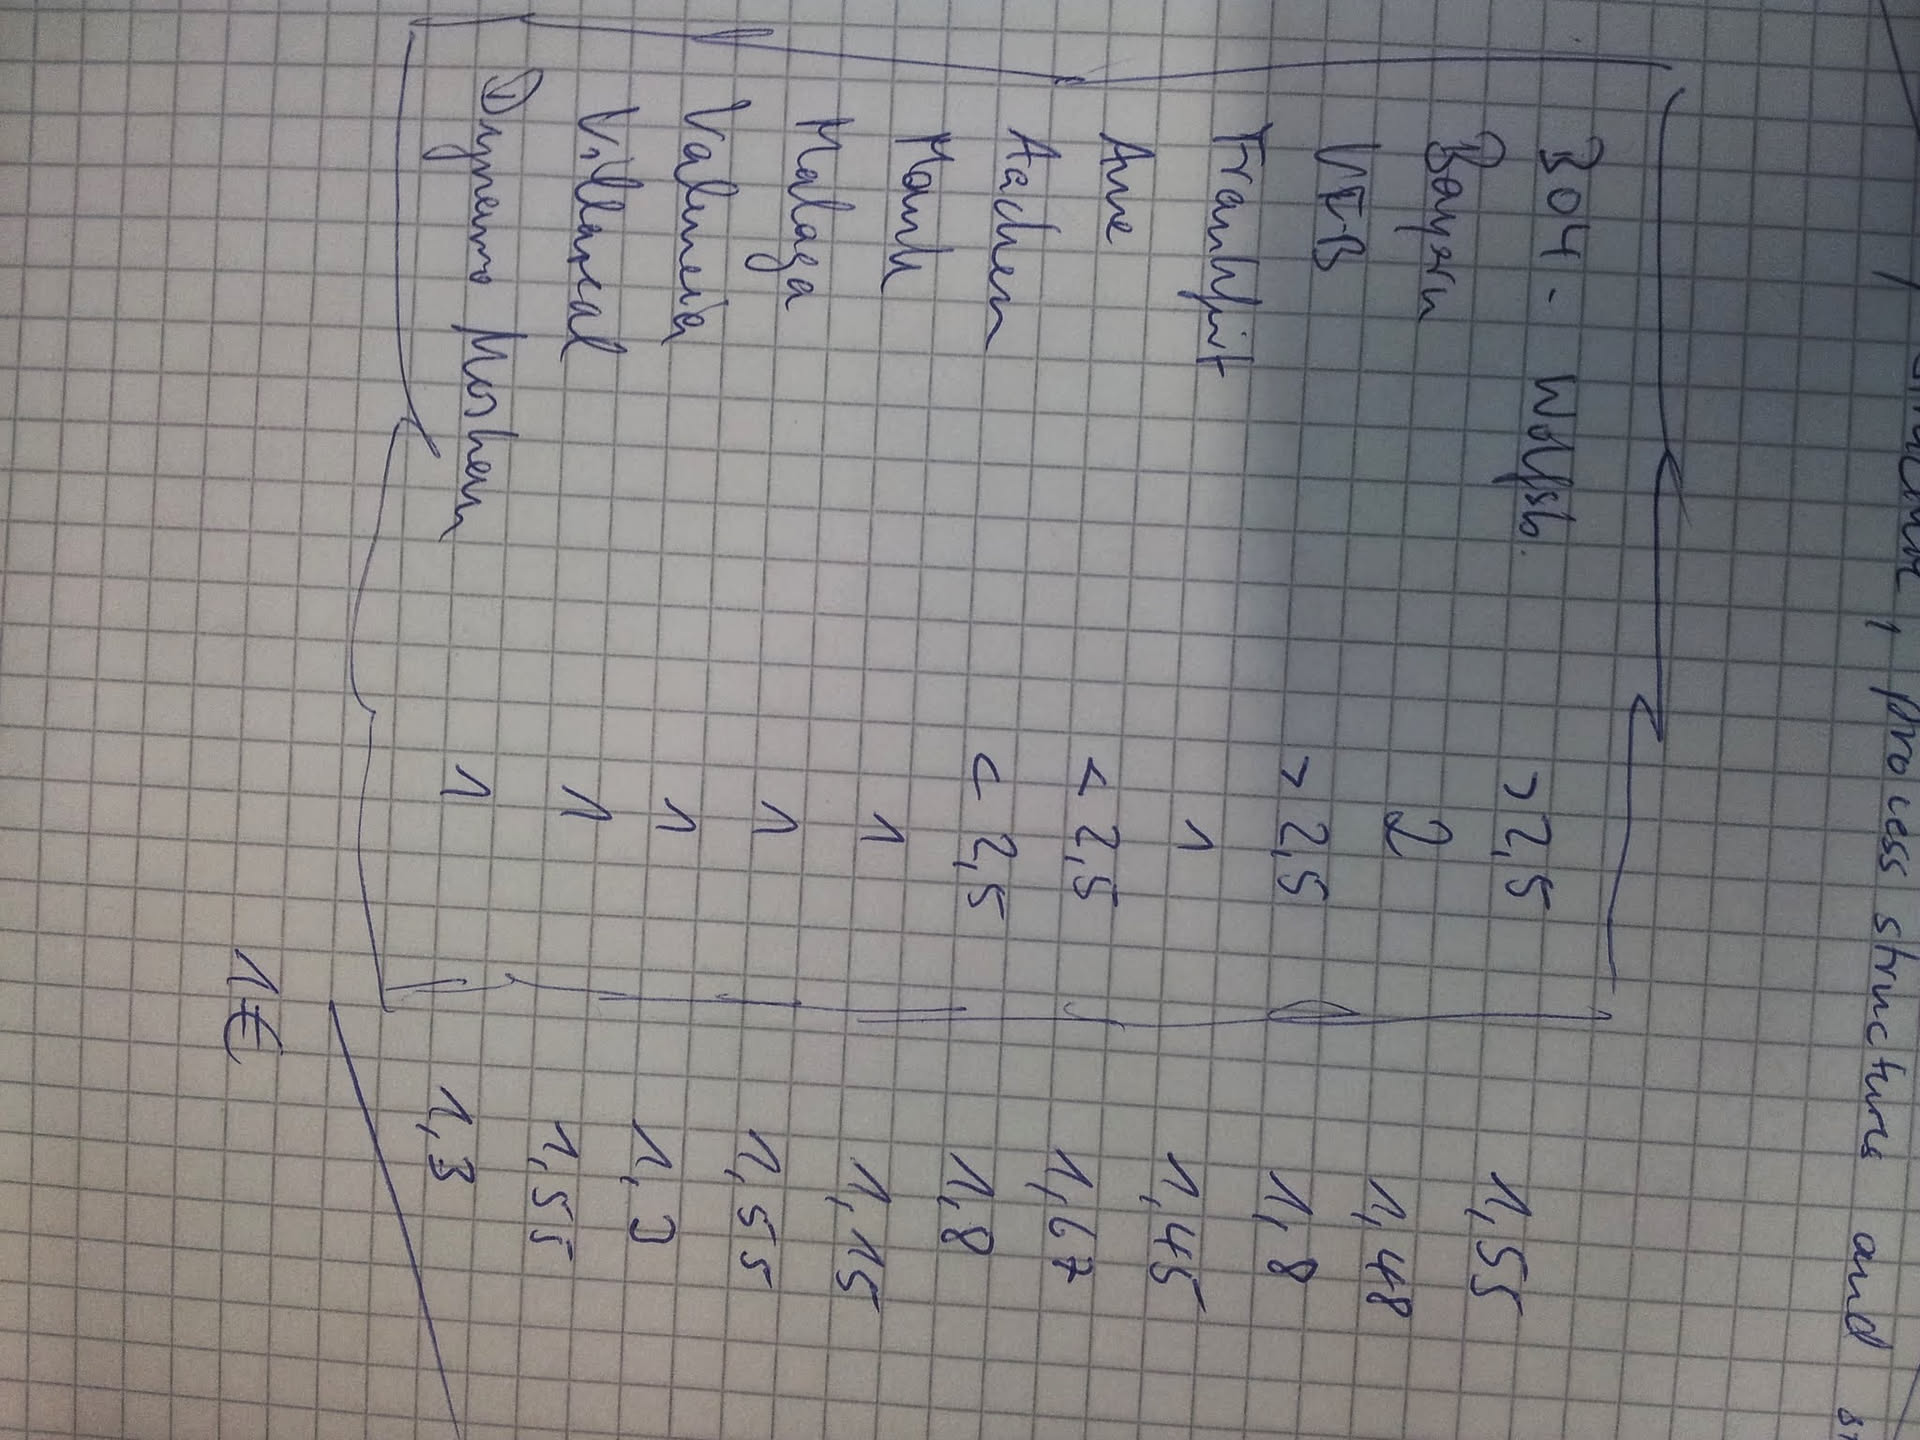 process structure and
B04 - Wolfsb. >2,5 1,55
Bayern 2 1,48
VFB >2,5 1,8
Frankfurt 1 1,45
Aue <2,5 1,67
Aachen <2,5 1,8
ManU 1 1,15
Malaga 1 1,55
Valencia 1 1,3
Villareal 1 1,55
Dynamo Moskau 1 1,3
1€